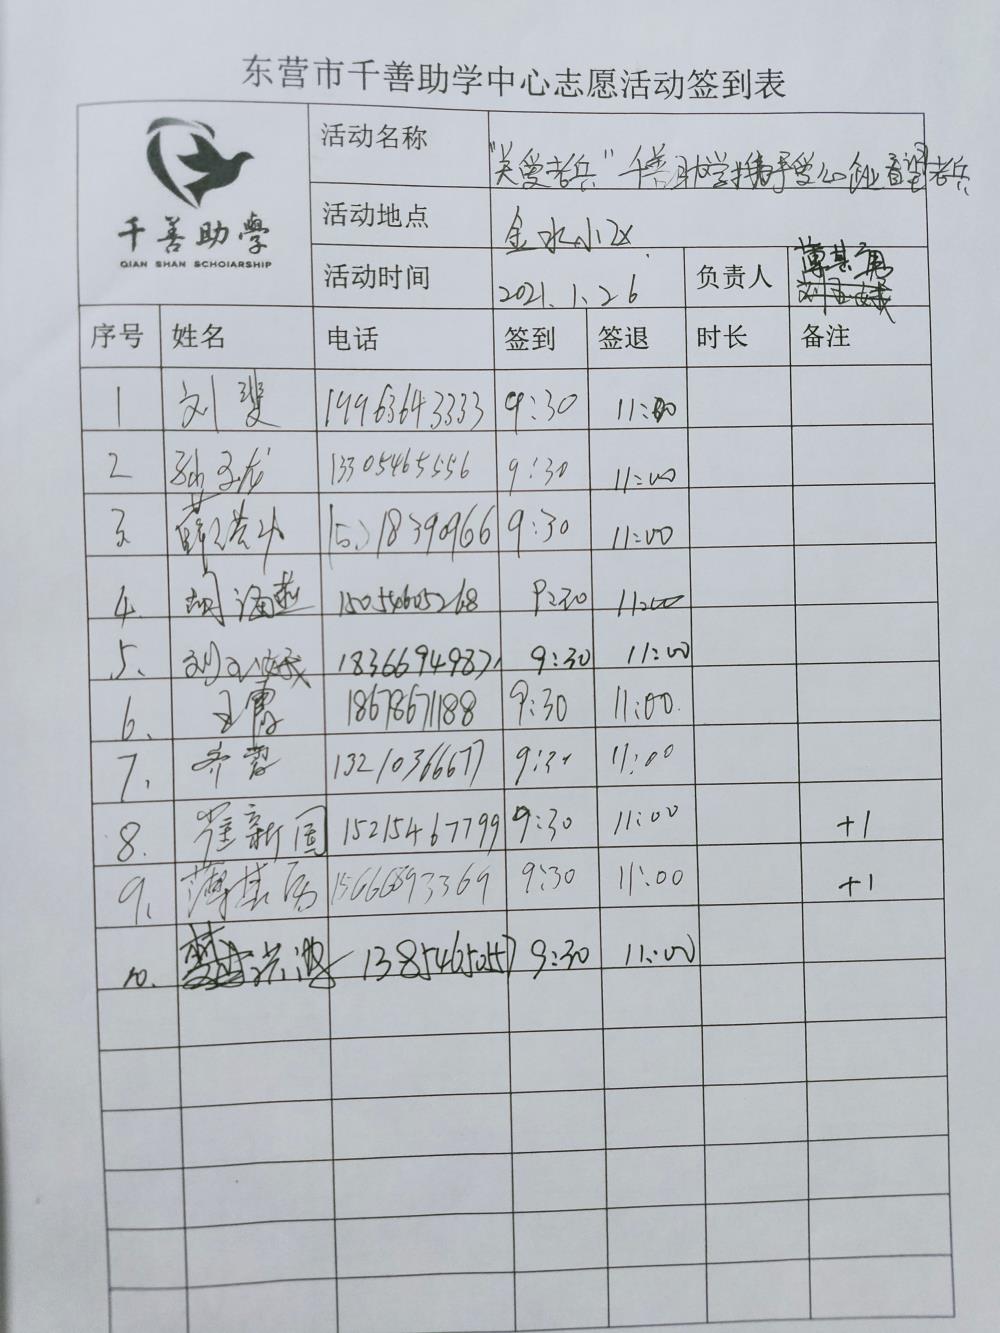 东营市千善助学中心志愿活动签到表
千善助學
QIAN SHAN SCHOIARSHIP
活动名称 "关爱老兵"千善助学携手爱心企业看望老兵
活动地点 金水小区
活动时间 2021.1.26 负责人 薄其勇
序号 姓名 电话 签到 签退 时长 备注
1 刘斐 19963643333 9:30 11:00
2 13305465556 9:30 11:00
3 薛 18390966 9:30 11:00
4. 胡海燕 15054605268 9:30 11:00
5. 刘 1836694987 9:30 11:00
6. 王霞 18678671188 9:30 11:00.
7. 齐 13210366677 9:30 11:00
8. 崔新国 15215467799 9:30 11:00 +1
9. 薄其勇 9:30 11:00 +1
10. 洪 9:30 11:00